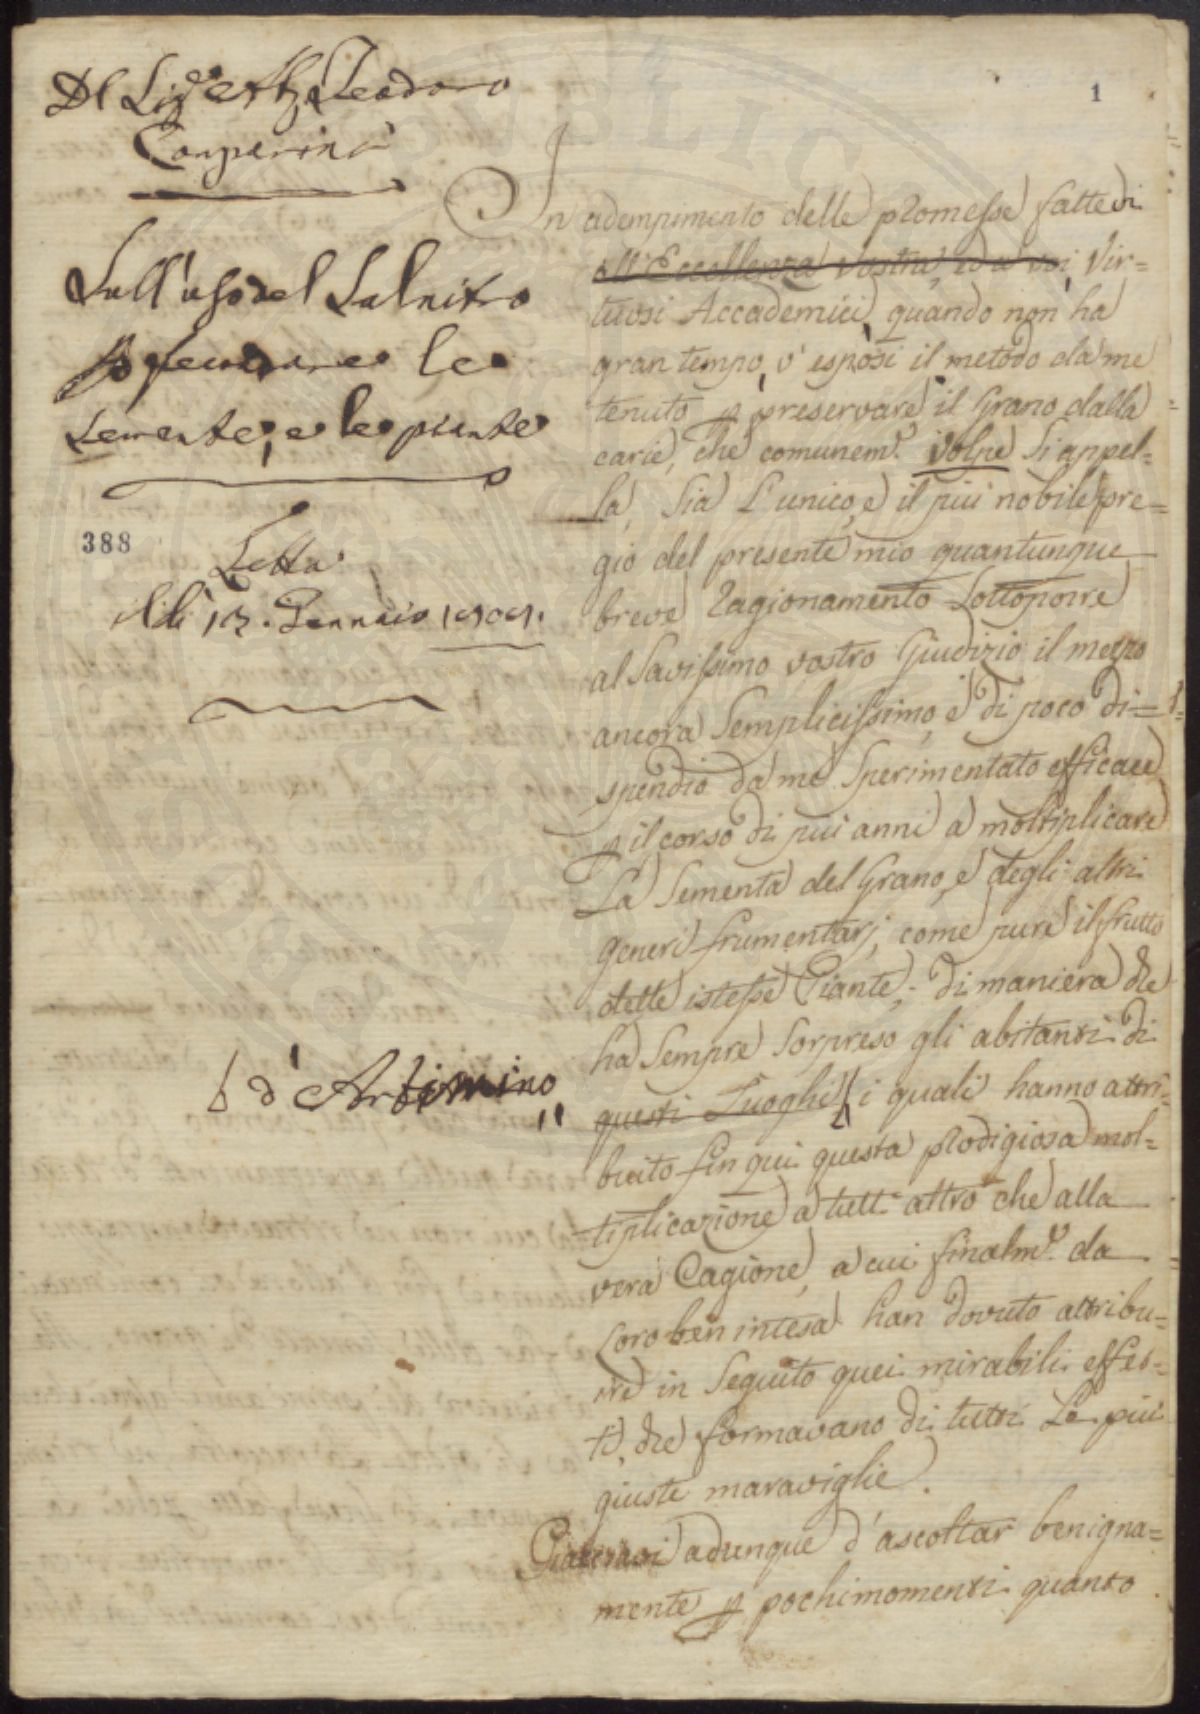 1
Del Sig.e Teodoro
Comparini
Sull'uso del Salnitro
p fecondare le
Semente, e le piante
388
Letta
il dì 13. Gennaio
b d'Artimino
In adempimento delle promesse fatte di
all'Eccellenza Vostra, ed a voi, Vir=
tuosi Accademici, quando non ha
gran tempo, v'esposi il metodo da me
tenuto p preservare il Grano dalla
carie, che comunem.e Volpe Si appel=
la, Sia L'unico, e il più nobile pre=
gio del presente mio quantunque
breve Ragionamento Sottoporre
al Savissimo vostro Giudizio il mezzo
ancora Semplicissimo, e di poco di=
spendio da me Sperimentato efficace
p il corso di più anni a moltiplicare
La Sementa del Grano, e degli altri
generi frumentarj, come pure il frutto
delle istesse Piante; di maniera che
ha Sempre Sorpreso gli abitanti di
questi Luoghi b i quali hanno attri=
buito fin qui questa prodigiosa mol=
tiplicazione a tutt'altro che alla
vera Cagione, a cui finalm.e da
Loro ben intesa han dovuto attribu=
ire in Seguito quei mirabili effet=
ti, che formavano di tutti Le più
giuste maraviglie.
Piacciavi adunque d'ascoltar benigna=
mente p pochi momenti quanto